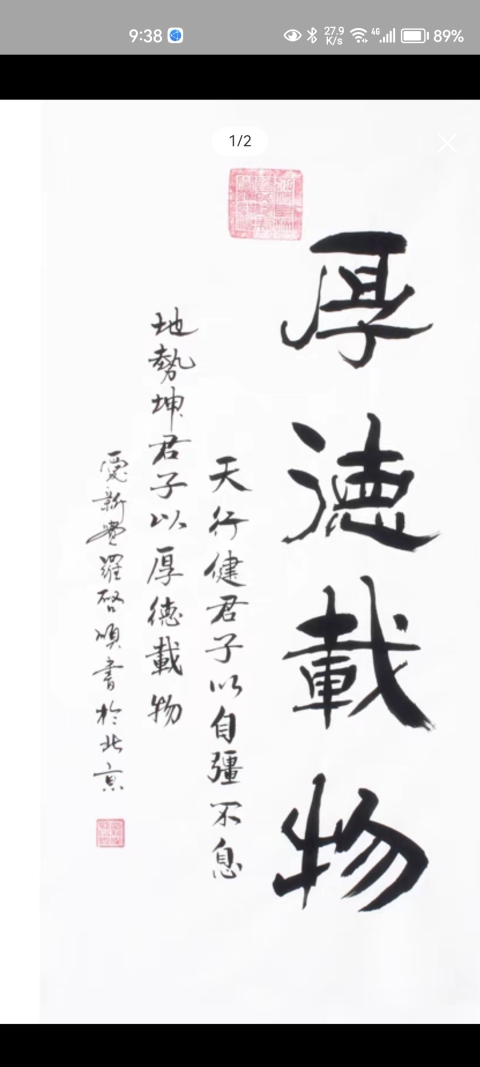 9:38
27.9 K/s
4G
89%
1/2
厚德載物
天行健君子以自彊不息
地勢坤君子以厚德載物
愛新覺羅啓順書於北京